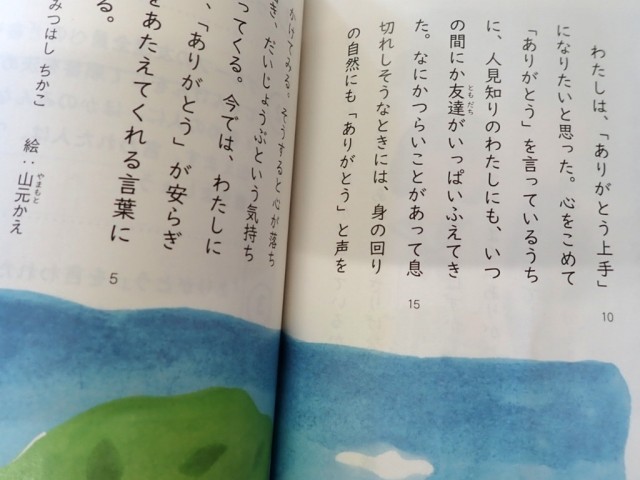 わたしは、「ありがとう上手」
になりたいと思った。心をこめて
「ありがとう」を言っているうち
に、人見知りのわたしにも、いつ
の間にか友達がいっぱいふえてき
た。なにかつらいことがあって息
切れしそうなときには、身の回り
の自然にも「ありがとう」と声を
ともだち
10
15
かけてみる。そうすると心が落ち
き、だいじょうぶという気持ち
ってくる。今では、わたしに
、「ありがとう」が安らぎ
をあたえてくれる言葉に
る。
5
みつはし ちかこ
絵：山元かえ
やまもと